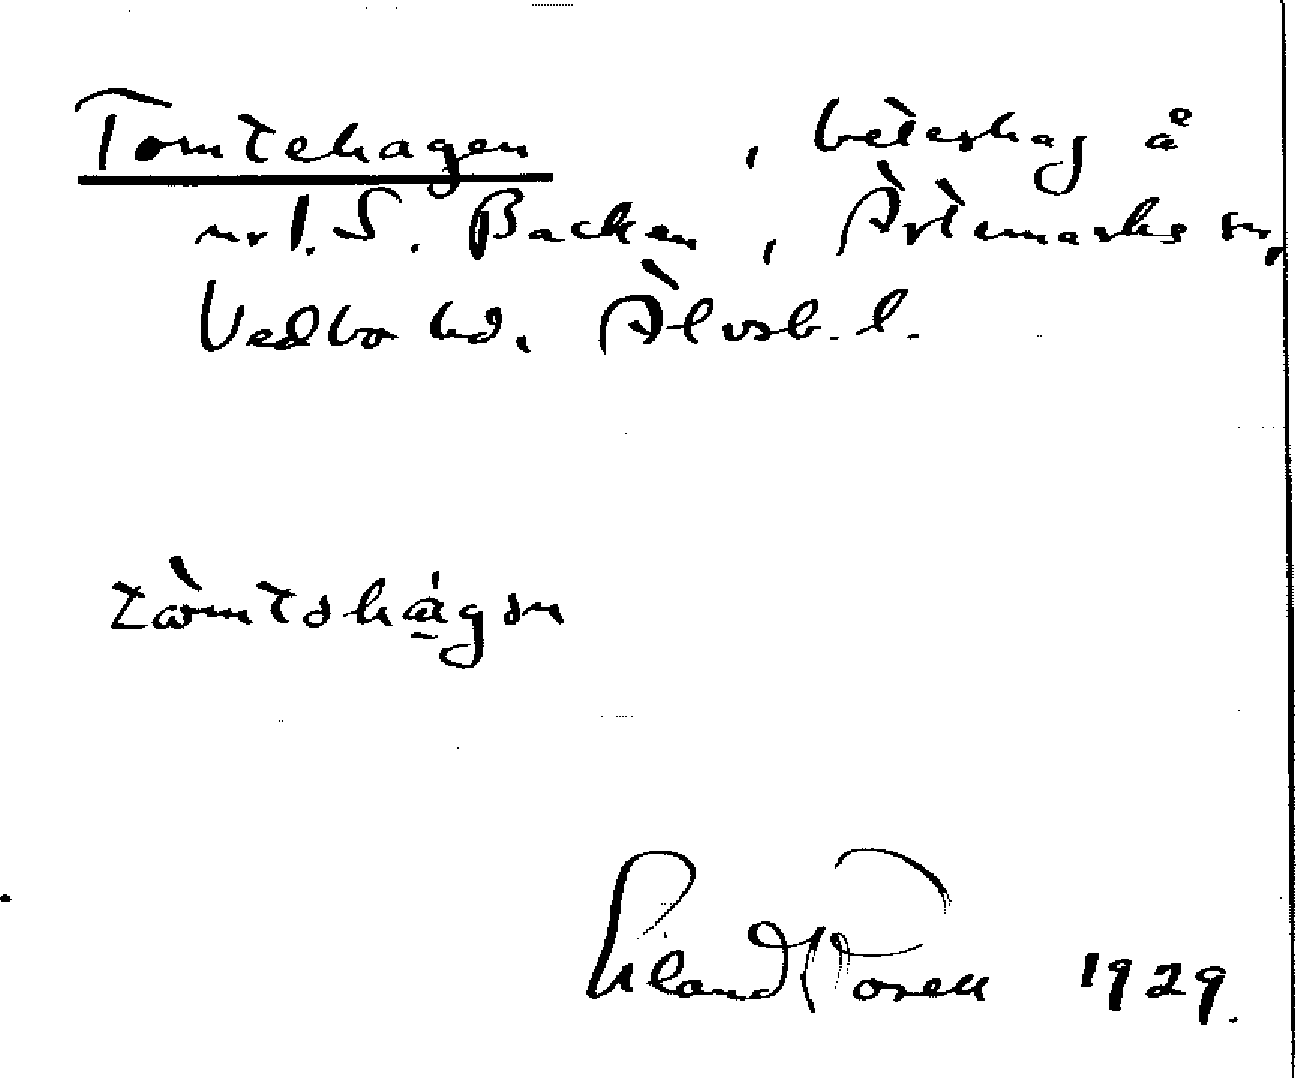 Tomtehagen , beteshag å
nr 1. S. Backen, Ärtemarks sn,
Vedbo hd. Älvsb. l.
tòmtəhágən
Erland Rosell 1929.